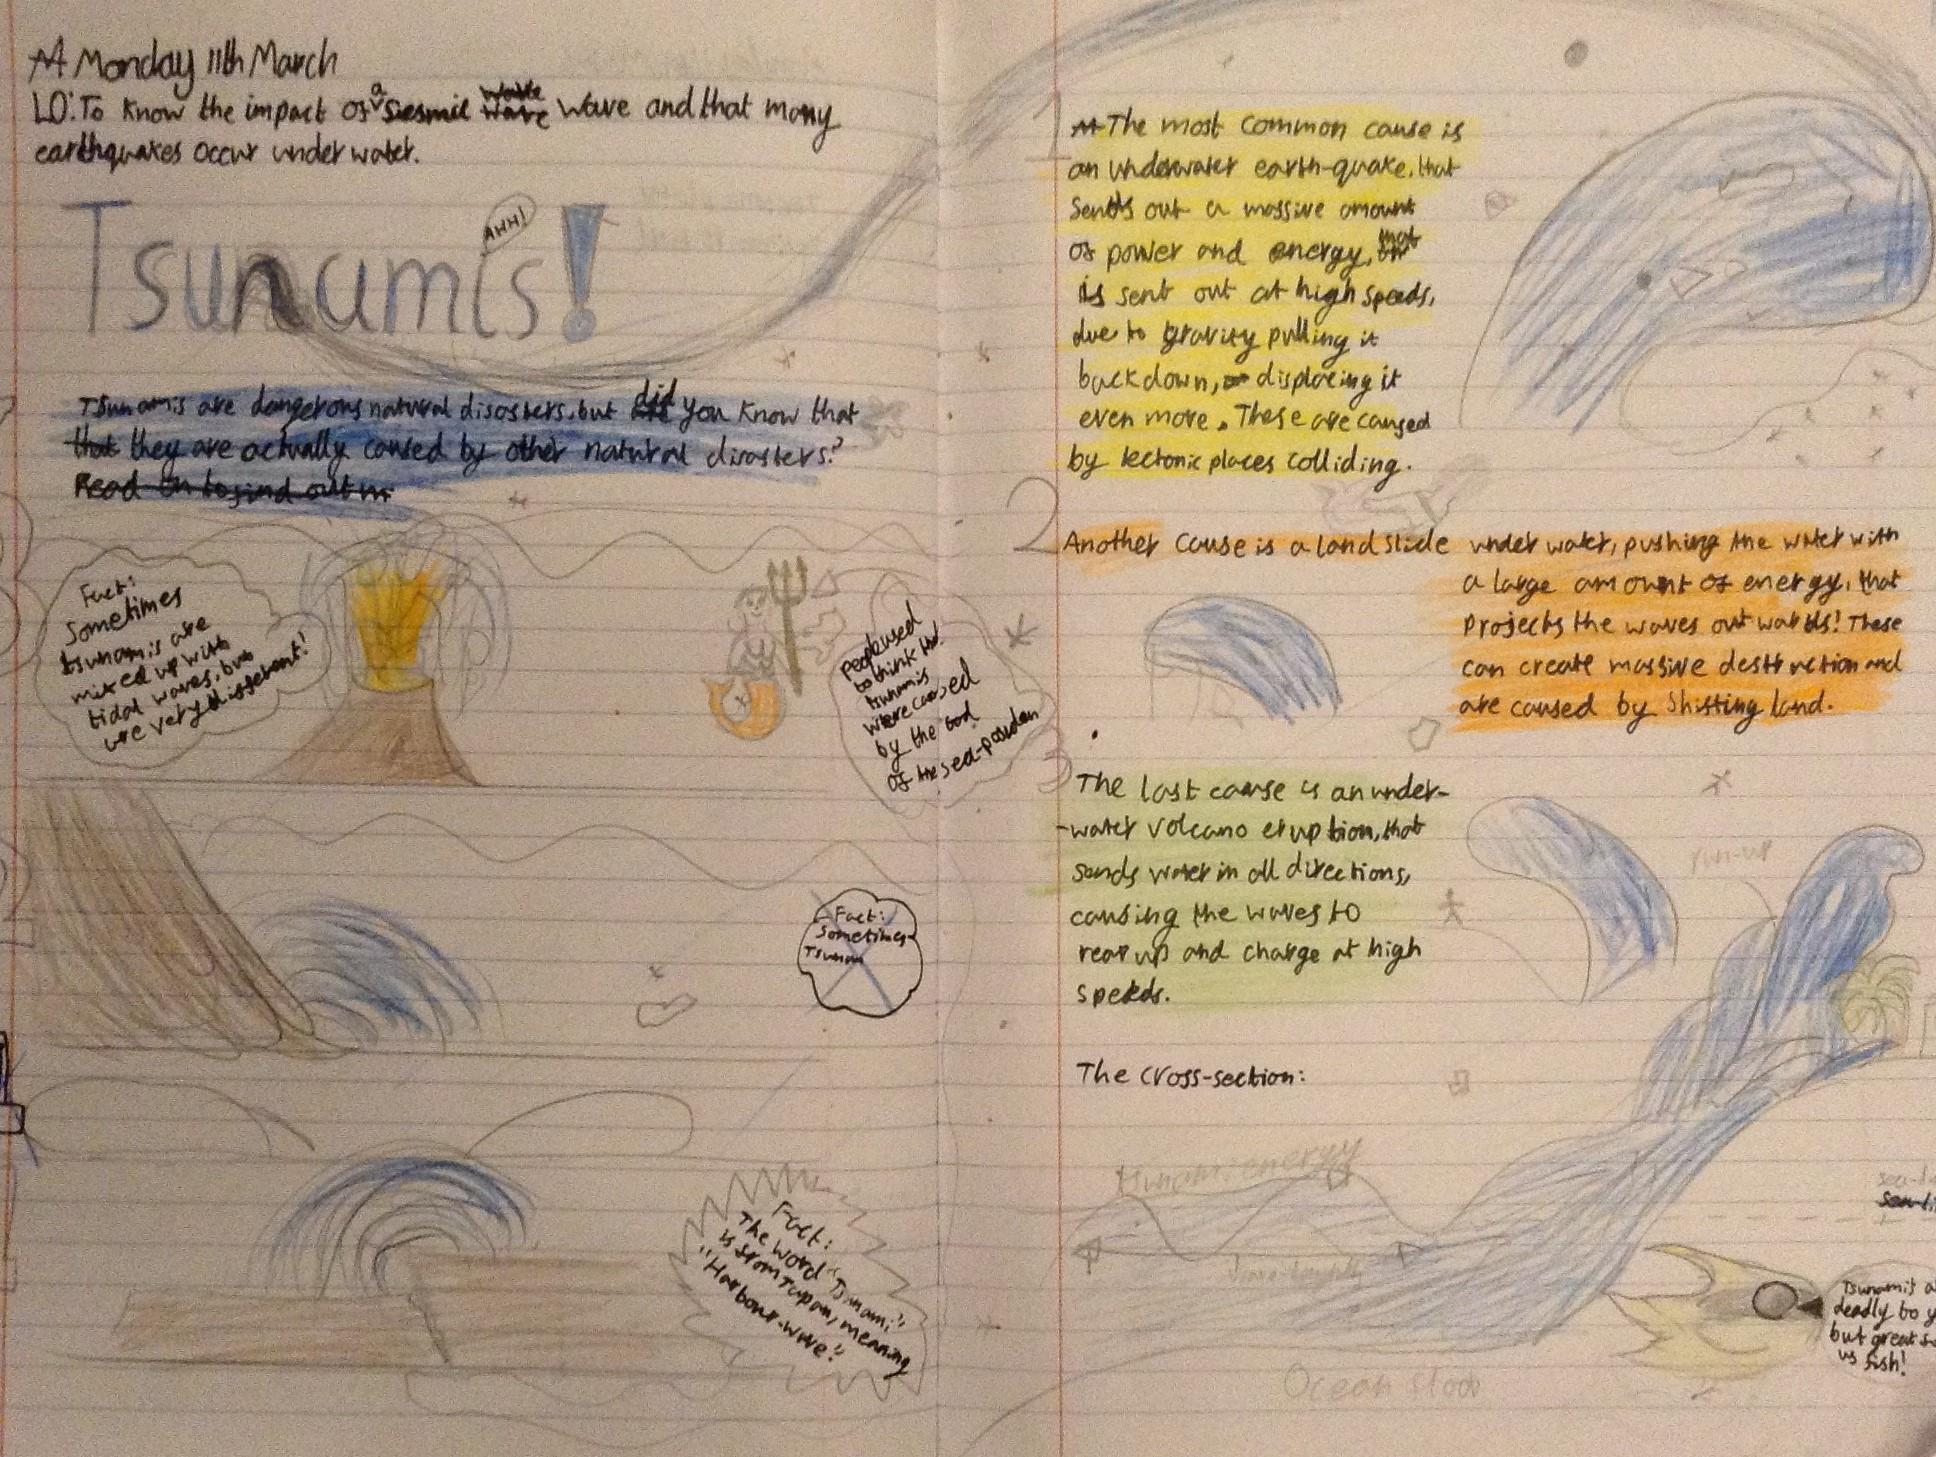 Monday 11th March
LO: To know the impact of a Siesmic wave and that many
earthquakes occur under water.
Tsunamis!
AHH!
Tsunamis are dangerous natural disasters, but did you know that
that they are actually caused by other natural disasters?
Read on to find out m
Fact:
Sometimes
tsunamis are
mixed up with
tidal waves, but
are very different!
People used
to think that
tsunamis
where caused
by the God
of the sea-posidon
Fact:
Sometimes
Tsunam
Fact:
The word "Tsunami"
is from Japan, meaning
"Harbour-wave".
1
The most common cause is
an underwater earth-quake, that
sends out a massive amount
of power and energy, that
is sent out at high speeds,
due to gravity pulling it
back down, displacing it
even more. These are caused
by tectonic places colliding.
2
Another cause is a land slide under water, pushing the water with
a large amount of energy, that
projects the waves out wards! These
can create massive destruction and
are caused by shifting land.
3
The last cause is an under-
-water volcano eruption, that
sends water in all directions,
causing the waves to
rear up and charge at high
speeds.
run-up
The cross-section:
tsunami energy
sea-l
Sea-li
Tsunamis a
deadly to y
but great fo
us fish!
Ocean floor